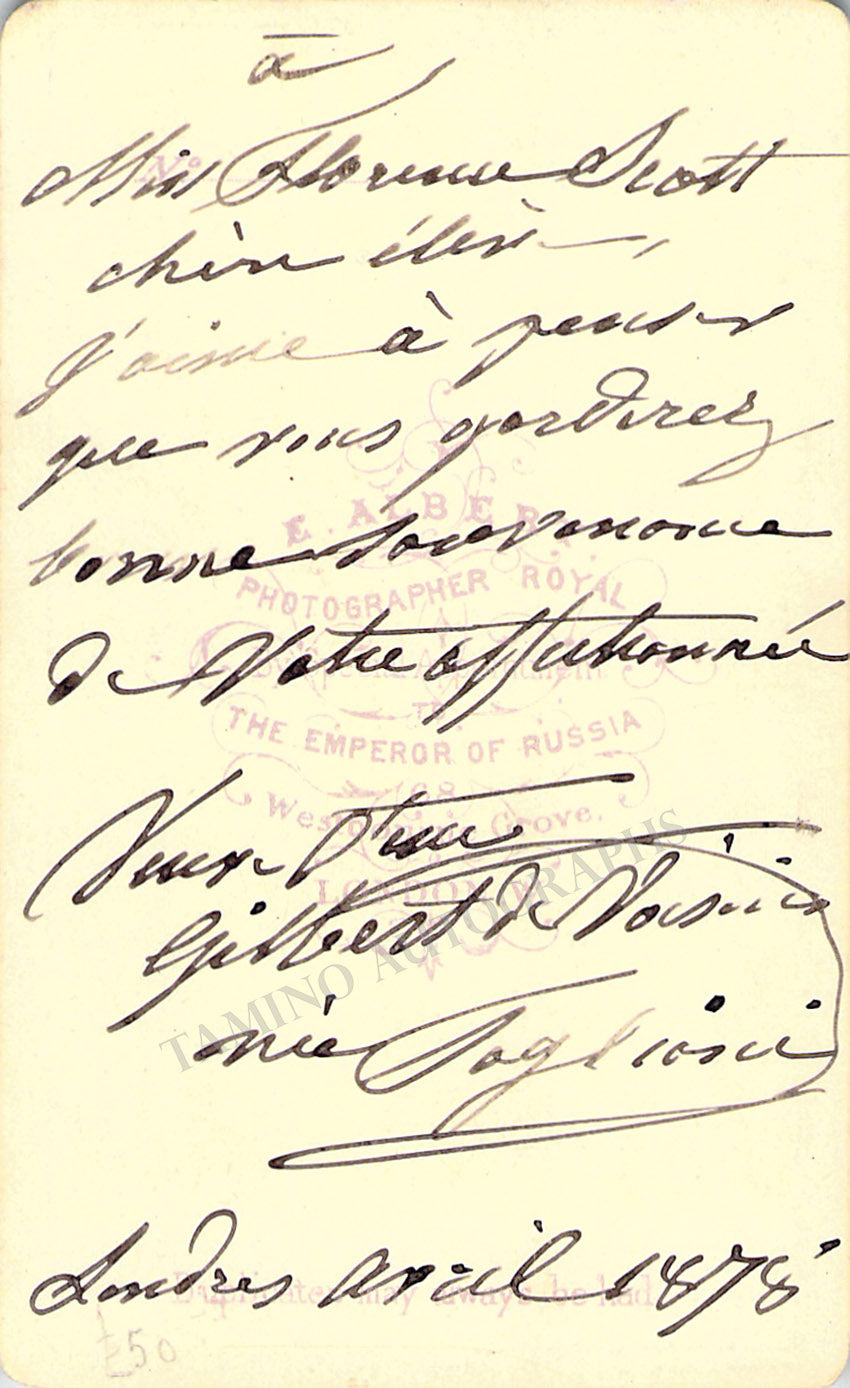 à
Miss Florence Scott
N°
chère élève,
J'aime à penser
que vous garderez
E. ALBERT.
bonne souvenance
PHOTOGRAPHER ROYAL
de Votre affectionnée
By Special Appointment
TO
THE EMPEROR OF RUSSIA
68
Westbourne Grove.
LONDON W.
Gilbert de Voisins
TAMINO AUTOGRAPHS
née Taglioni
Londres avril 1878
Duplicates may always be had.
£50